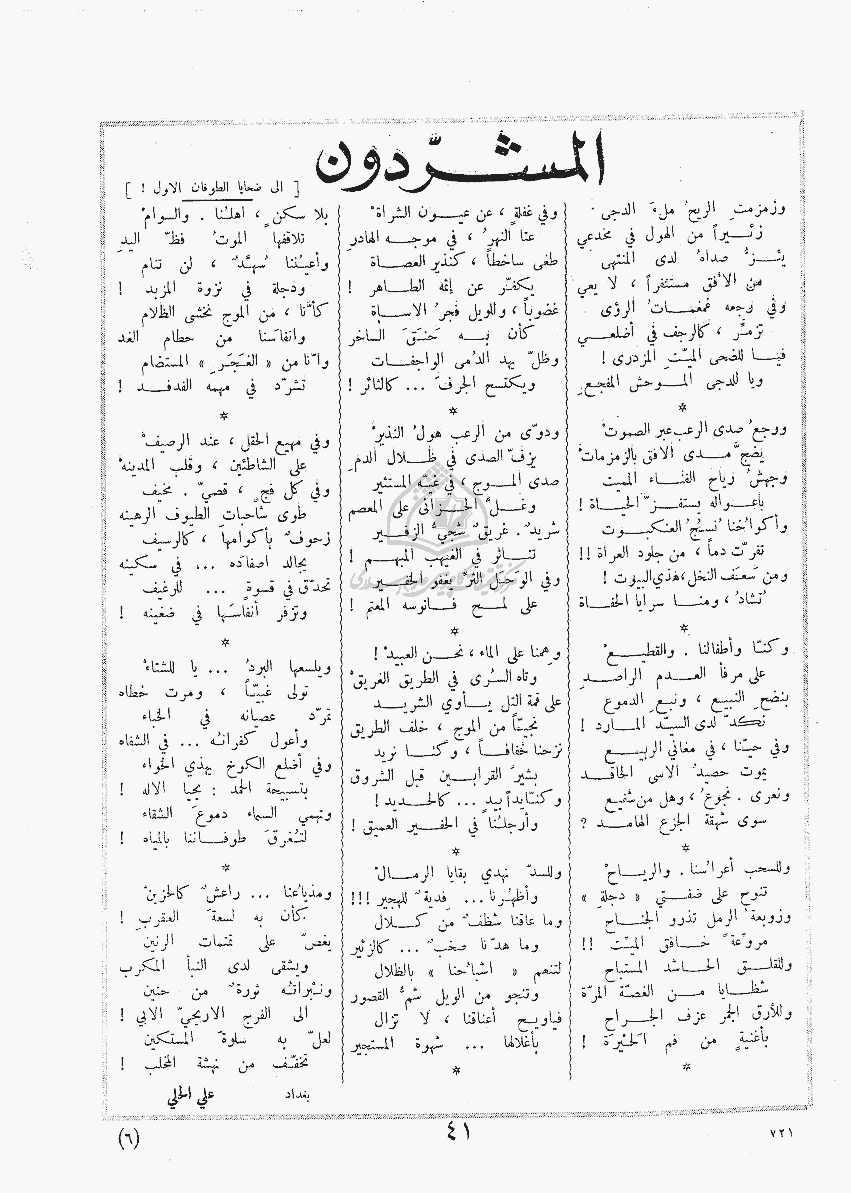 المشرّدون
[ الى ضحايا الطوفان الاول ! ]
وزمزمتِ الريحُ ملءَ الدجى
زئيراً من الهول في مخدعي
يئزّ صداهُ لدى المنتهى
من الأفق مستنفراً ، لا يعي
وفي وجعه غمغمات الرؤى
تزمجر ، كالرجف في أضلعي
فيا للضحى الميّتِ المزدرى !
ويا للدجى الموحش المفجع
*
ووجع صدى الرعب عبر الصموت
يضجّ مدى الافق بالزمزمات
وجهش رياح الفناء المميت
باعواله يستفزّ الحياة !
وأكواخنا نسيجُ العنكبوت
تفرّت دماً ، من جلود العراة !!
ومن سَعَف النخل ، هذي البيوت !
تُشاد ، ومنا سرايا الحفاة
*
وكنّا وأطفالنا . والقطيع
على مرفأ العدم الراصدِ
بنضح النبيع ، ونبع الدموع
نكدّ لدى السيّد المارد !
وفي حيّنا ، في مغاني الربيع
يموت حصيد الاسى الحاقد
ونعرى . نجوع ، وهل من شفيع
سوى شهقة الجزع الهامد ؟
*
وللسحب أعراسنا . والرياح
تنوح على ضفتي « دجلةِ »
وزوبعة الرمل تذرو الجناح
مروّعةً خافق الميّت !!
وللقلق الحاشد المستباح
شظايا من الغصة المرّة
وللأرق الجمر عزف الجراح
بأغنيةٍ من فم الحَيْرَة !
*
وفي غفلةٍ ، عن عيون الشراة
عتا النهرُ ، في موجه الهادرِ
طغى ساخطاً ، كنذير العصاة
يكفّر عن إثمه الطاهر !
غضوباً ، وللويل فجرُ الأساة
كأن به حنق الساخر
وظلّ يهد الدمى الواجفات
ويكتسح الجرفَ ... كالثائر !
*
ودوّى من الرعب هولُ النذير
يزفّ الصدى في ظلال الدم
صدى الموج ، في غيّه المستثير
وغلّ الحزانى على المعصم
شريدٌ . غريقٌ شجيّ الزفير
تناثر في الغيهب المبهم !
وفي الوَحَل الثرّ يغفو الحفير
على لمح فانوسه المعتم !
*
وهمنا على الماء ، نحن العبيد !
وتاه السُرى في الطريق الغريق
على قمة التل يأوي الشريد
نجيّاً من الموج ، خلف الطريق
نزحنا خفافاً ، وكنا نريد
بشيرَ القرابين قبل الشروق
وكنّا يداً بيدٍ ... كالحديد !
وأرجلُنا في الحفير العميق !
*
وللسدّ نهدي بقايا الرمال
وأظهُرنا ... فديةٌ للهجير !!!
وما عاقنا شظفٌ من كلال
وما هدّنا صخبٌ ... كالزئير
لتنعم « اشباحنا » بالظلال
وتنجو من الويل شمُّ القصور
فياويح أعناقنا ، لا تزال
بأغلالها ... شهوة المستجير
*
بلا سكنٍ ، أهلنا . والسوام
تلاقفها الموتُ فظّ اليدِ
وأعيننا سُهّدٌ ، لن تنام
ودجلة في نزوة المزبد !
كأنّا ، من الموج نخشى الظلام
وانفاسنا من حطام الغد
وإنّا من « الغَجَرِ » المستضام
تشرّد في مهمه الفدفد !
*
وفي مهيع الحقل ، عند الرصيف
على الشاطئين ، وقلب المدينه
وفي كل فجٍ ، قصيّ . مخيف
طوى شاحبات الطيوف الرهينه
زحوفٌ بأكوامها ، كالرسيف
يجالد اصفاده ... في سكينه
تحدّق في قسوة ... للرغيف
وتزفر أنفاسَها في ضغينه !
*
ويلسعها البردُ ... يا للشتاء
تولى غبيّاً ، ومرت خطاه
تمرّد عصيانه في الخباء
وأعول كفرانه ... في الشفاه
وفي أضلع الكوخ يهذي الخواء
بتسبيحة الحمد : يحيا الاله !
وتهمي السماء دموعَ الشقاء
لتُغرقَ طوفاننا بالمياه !
*
ومذياعنا ... راعشٌ كالحزين
كأن به لسعةَ العقربِ !
يغصّ على تمتمات الرنين
ويشقى لدى النبأ المكرب
ونبراته ثورةٌ من حنين
الى الفرج الاريحيّ الابي !
لعلّ به سلوةَ المستكين
تخفّف من نهشة المخلب !
بغداد
علي الحلي
٧٢١
٤١
(٦)